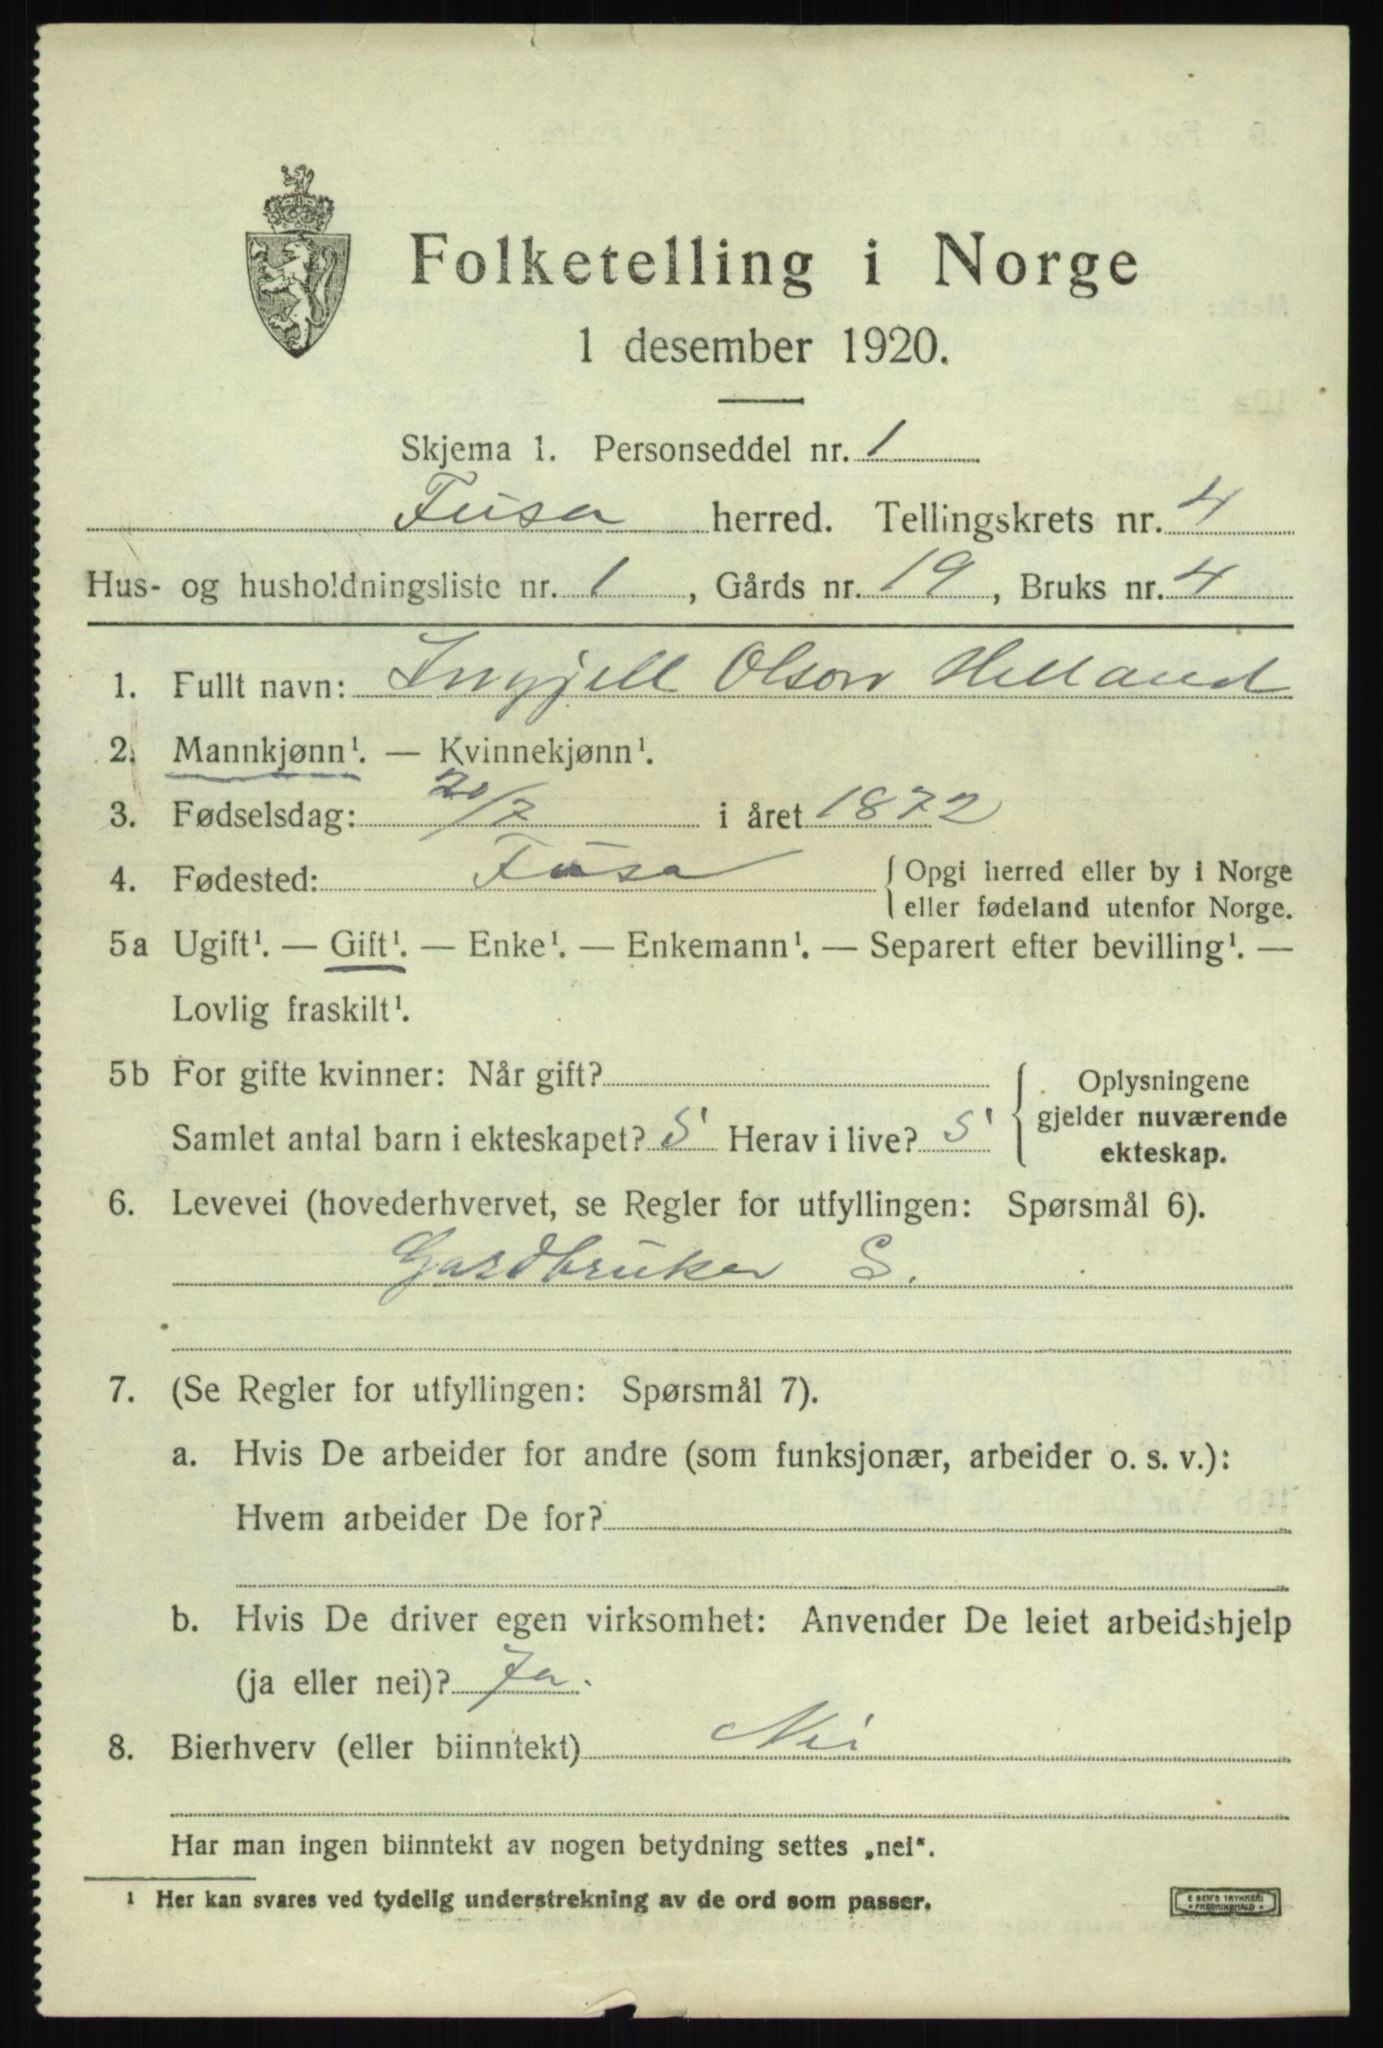 Folketelling i Norge
1 desember 1920.
Skjema 1. Personseddel nr. 1
Fusa herred. Tellingskrets nr. 4
Hus- og husholdningsliste nr. 1, Gårds nr. 19, Bruks nr. 4
1. Fullt navn: Ingjell Olson Helland
2. Mannkjønn¹. — Kvinnekjønn¹.
3. Fødselsdag: 20/7 i året 1872
4. Fødested: Fusa { Opgi herred eller by i Norge
eller fødeland utenfor Norge.
5a Ugift¹. — Gift¹. — Enke¹. — Enkemann¹. — Separert efter bevilling¹. —
Lovlig fraskilt¹.
5b For gifte kvinner: Når gift?
Samlet antal barn i ekteskapet? 5 Herav i live? 5
{ Oplysningene
gjelder nuværende
ekteskap.
6. Levevei (hovederhvervet, se Regler for utfyllingen: Spørsmål 6).
Gardbruker S.
7. (Se Regler for utfyllingen: Spørsmål 7).
a. Hvis De arbeider for andre (som funksjonær, arbeider o. s. v.):
Hvem arbeider De for?
b. Hvis De driver egen virksomhet: Anvender De leiet arbeidshjelp
(ja eller nei)? Ja.
8. Bierhverv (eller biinntekt) Nei
Har man ingen biinntekt av nogen betydning settes „nei“.
¹ Her kan svares ved tydelig understrekning av de ord som passer.
E SEM'S TRYKKERI
FREDRIKSHALD